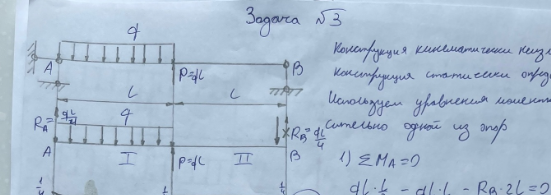 Задача №3
q
A
P=ql
B
l
l
q
R_A=ql/4
R_B=ql/4
A
I
P=ql
II
B
Конструкция кинематически
конструкция статически
Используем уравнения
одной из опор
1) ΣM_A=0
ql·l/2 - ql·l - R_B·2l=0